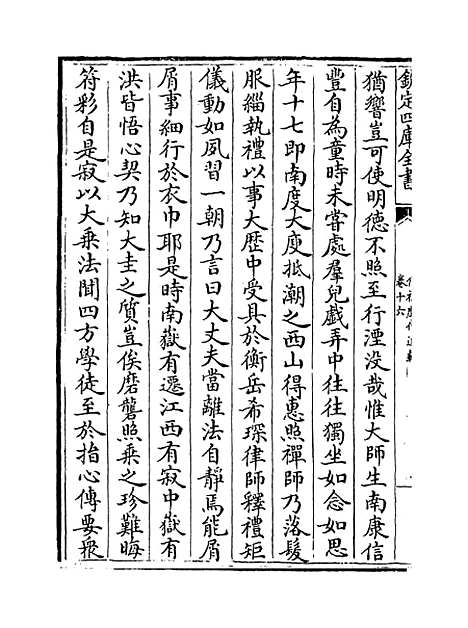 欽定四庫全書
卷十六
猶響豈可使明德不照至行湮没哉惟大師生南康信
豐自為童時未嘗處羣兒戲弄中往往獨坐如念如思
年十七即南度大庾抵潮之西山得惠照禪師乃落髮
服緇執禮以事大歴中受具於衡岳希琛律師釋禮矩
儀動如夙習一朝乃言曰大丈夫當離法自靜焉能屑
屑事細行於衣巾耶是時南嶽有遷江西有寂中嶽有
洪皆悟心契乃知大圭之質豈俟磨礱照乘之珍難晦
符彩自是寂以大乘法聞四方學徒至於指心傳要衆